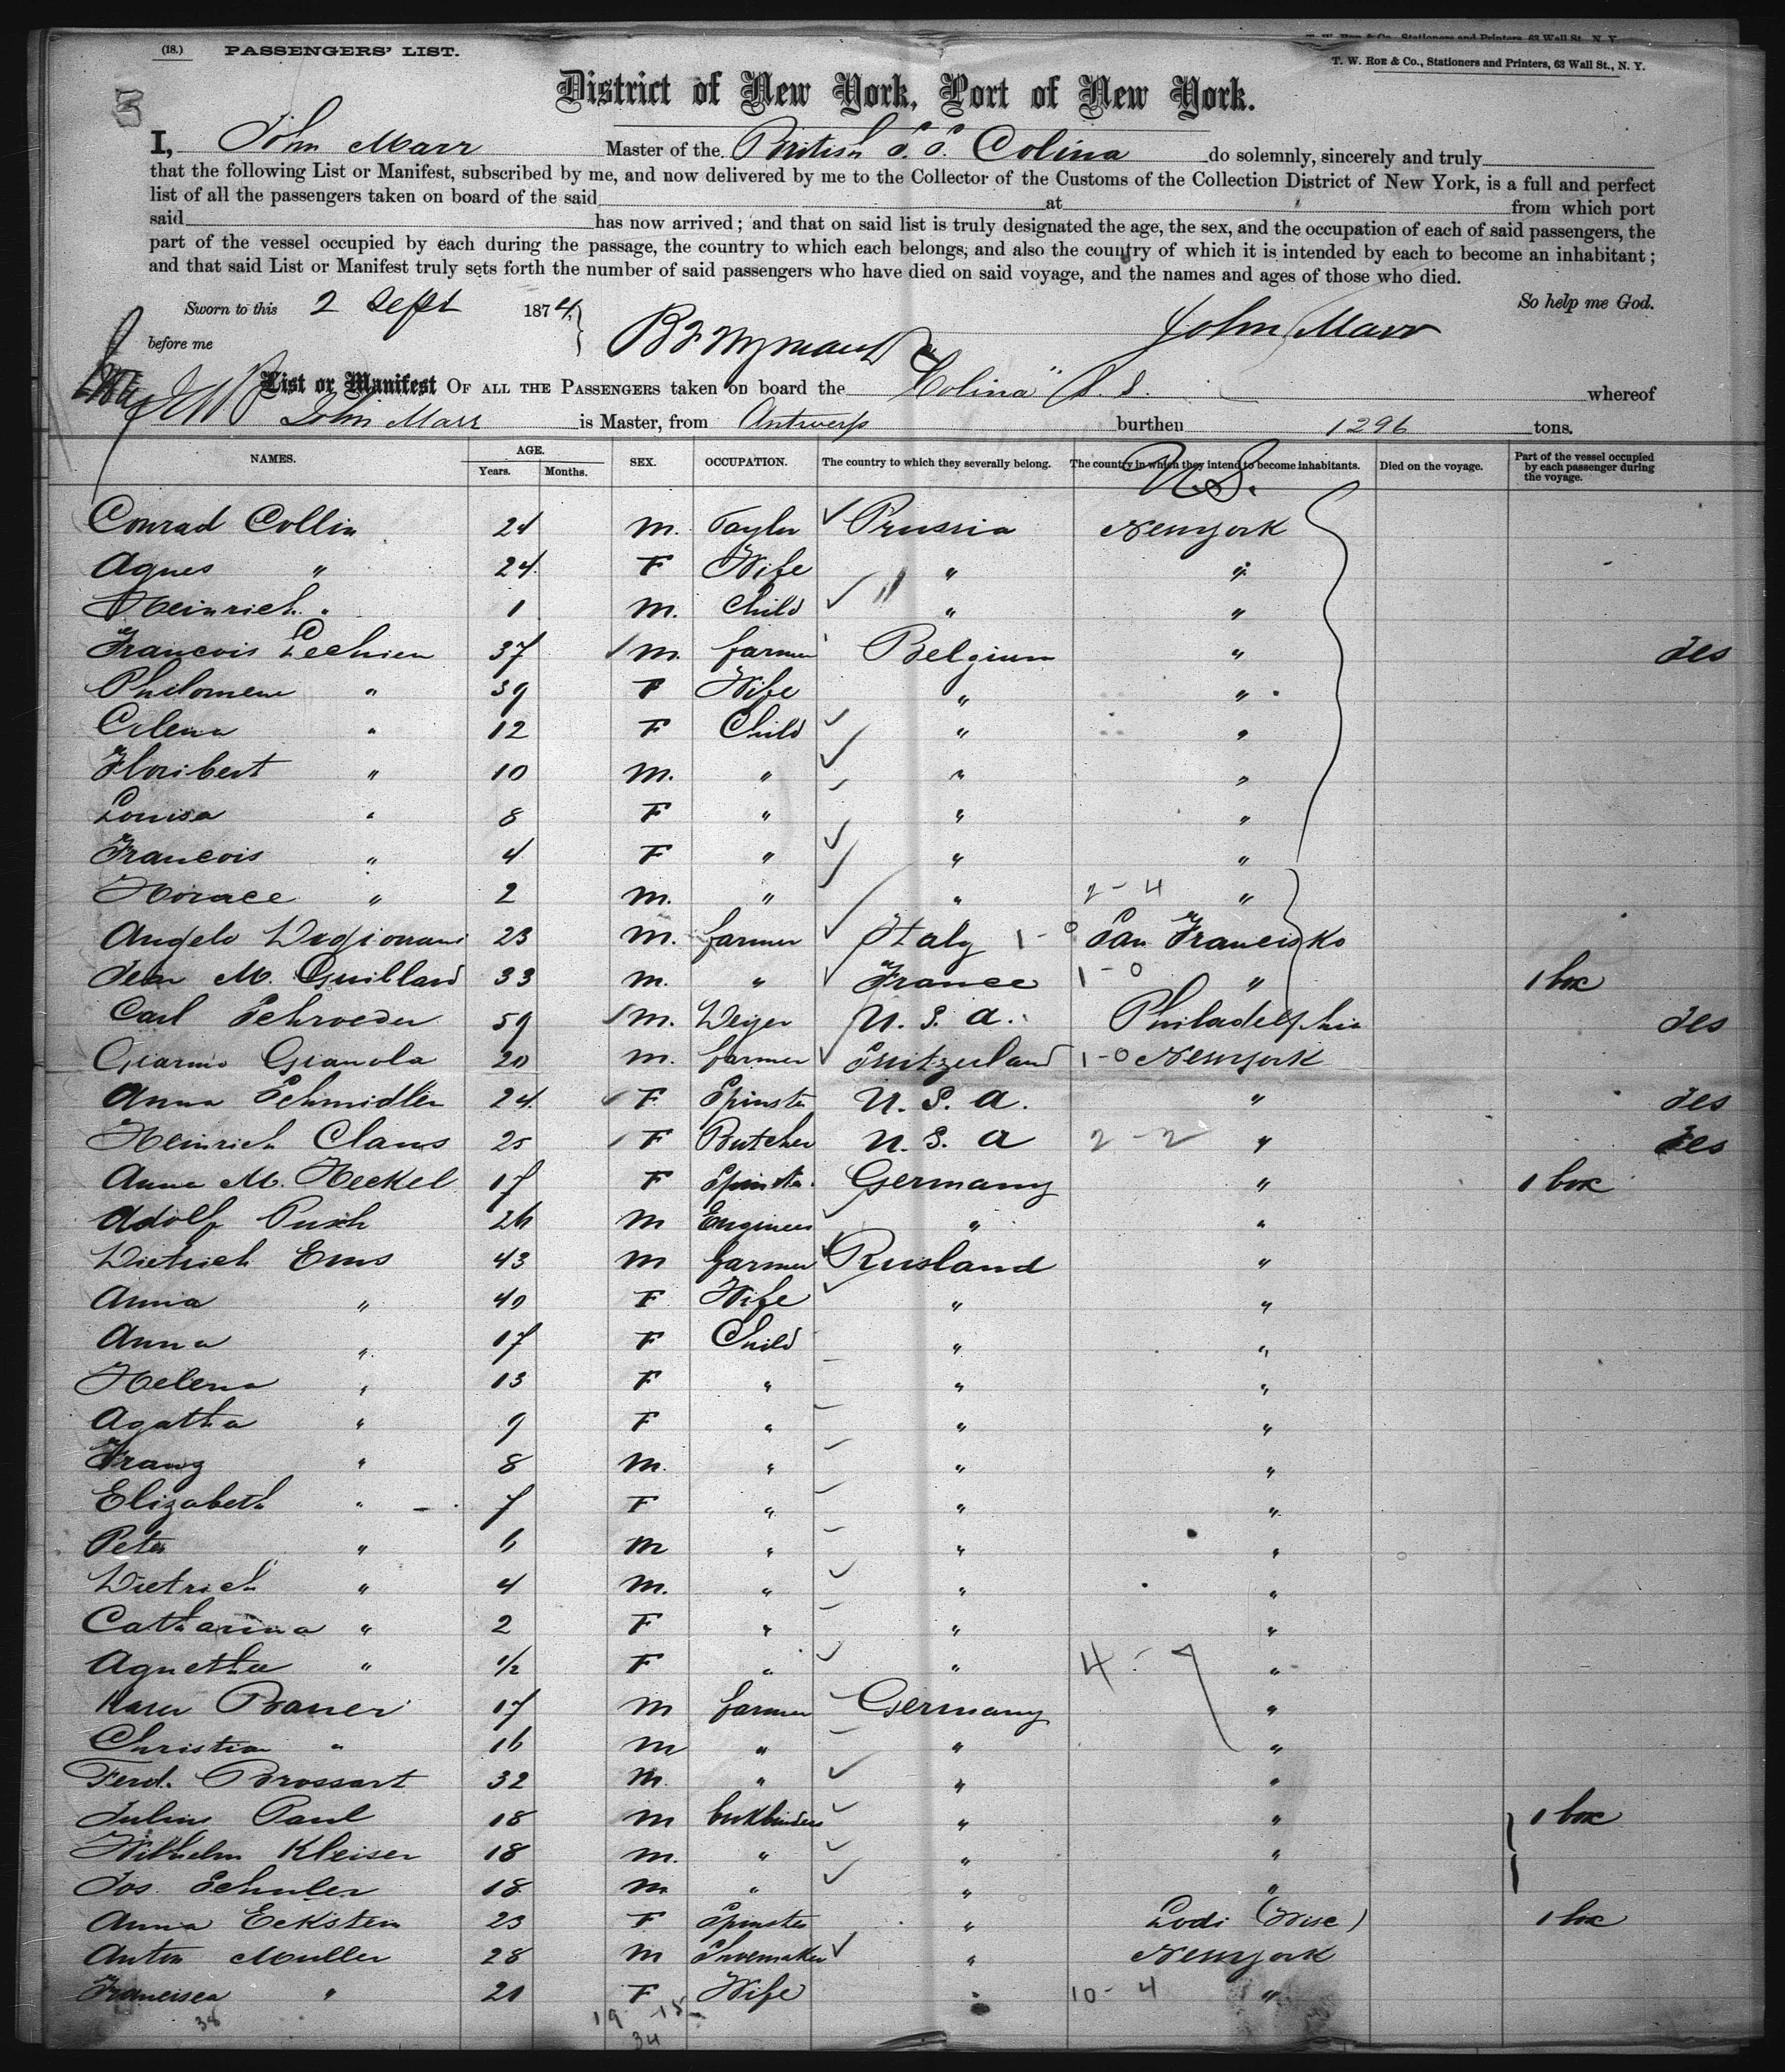 (18.) PASSENGERS' LIST.
T. W. ROE & Co., Stationers and Printers, 63 Wall St., N. Y.
District of New York, Port of New York.
I, John Marr Master of the British S.S. Colina do solemnly, sincerely and truly
that the following List or Manifest, subscribed by me, and now delivered by me to the Collector of the Customs of the Collection District of New York, is a full and perfect
list of all the passengers taken on board of the said at from which port
said has now arrived; and that on said list is truly designated the age, the sex, and the occupation of each of said passengers, the
part of the vessel occupied by each during the passage, the country to which each belongs, and also the country of which it is intended by each to become an inhabitant;
and that said List or Manifest truly sets forth the number of said passengers who have died on said voyage, and the names and ages of those who died.
Sworn to this 2 Sept 1874, So help me God.
before me John Marr
List or Manifest OF ALL THE PASSENGERS taken on board the "Colina" S.S. whereof
John Marr is Master, from Antwerp burthen 1296 tons.
NAMES. AGE. Years. Months. SEX. OCCUPATION. The country to which they severally belong. The country in which they intend to become inhabitants. Died on the voyage. Part of the vessel occupied by each passenger during the voyage.
U.S.
Conrad Collin 24 M. Taylor Prussia Newyork
Agnes " 24 F Wife " "
Heinrich " 1 M. Child " "
Francois Lechien 37 M. farmer Belgium "
Philomene " 39 F Wife " "
Celena " 12 F Child " "
Floribert " 10 M. " " "
Louisa " 8 F " " "
Francois " 4 F " " "
Horace " 2 M. " " 2-4 "
Angelo 23 M. farmer Italy 1-0 San Francisko
Jean M. Guilland 33 M. " France 1-0 " 1 box
Carl Schroeder 59 M. U.S.a. Philadelphia
Granola 20 M. farmer Switzerland 1-0 Newyork
Anna Schmidlin 24 F Spinster U.S.a. "
Heinrich Claus 25 F Butcher U.S.a 2-2 "
Anna M. Heckel 17 F Spinster Germany " 1 box
Adolf 26 M Engineer " "
Dietrich Ens 43 M farmer Rusland "
Anna " 40 F Wife " "
Anna " 17 F Child " "
Helena " 13 F " " "
Agatha " 9 F " " "
Franz " 8 M. " " "
Elizabeth " 7 F " " "
Peter " 6 M " " "
Dietrich " 4 M. " " "
Catharina " 2 F " " "
Agnetha " 1/2 F " " "
Bauer 17 M farmer Germany "
Christian " 16 M " " "
Ferd. Brossart 32 M. " " "
Julius Paul 18 M bookbinder " " 1 box
Wilhelm Kleiser 18 M. " " "
Jos. Schuler 18 M " " "
Anna Eckstein 23 F Spinster " Lodi (Wise) 1 box
Anton Muller 28 M Shoemaker " Newyork
Francisca " 21 F Wife " 10-4 "
38 19 15
34